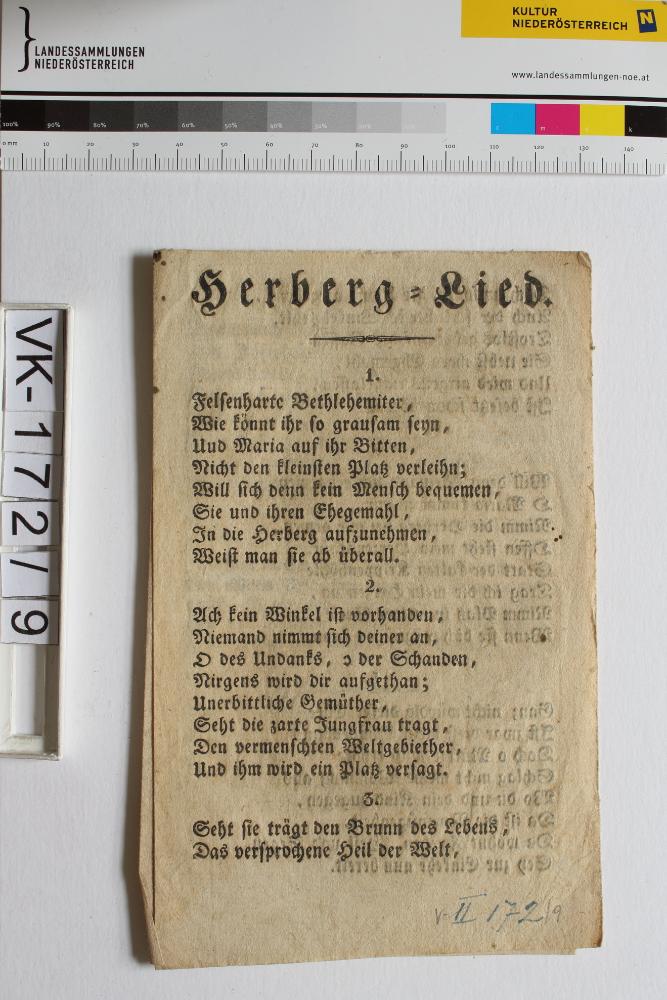 LANDESSAMMLUNGEN
NIEDERÖSTERREICH
KULTUR
NIEDERÖSTERREICH
N
www.landessammlungen-noe.at
100% 90% 80% 70% 60% 50% 40% 30% 20% 10%
c m y k
0 mm 10 20 30 40 50 60 70 80 90 100 110 120 130 140
VK-172/9
Herberg-Lied.
1.
Felsenharte Bethlehemiter,
Wie könnt ihr so grausam seyn,
Uud Maria auf ihr Bitten,
Nicht den kleinsten Platz verleihn;
Will sich denn kein Mensch bequemen,
Sie und ihren Ehegemahl,
In die Herberg aufzunehmen,
Weist man sie ab überall.
2.
Ach kein Winkel ist vorhanden,
Niemand nimmt sich deiner an,
O des Undanks, o der Schanden,
Nirgens wird dir aufgethan;
Unerbittliche Gemüther,
Seht die zarte Jungfrau tragt,
Den vermenschten Weltgebiether,
Und ihm wird ein Platz versagt.
3.
Seht sie trägt den Brunn des Lebens,
Das versprochene Heil der Welt,
V-II 172/9